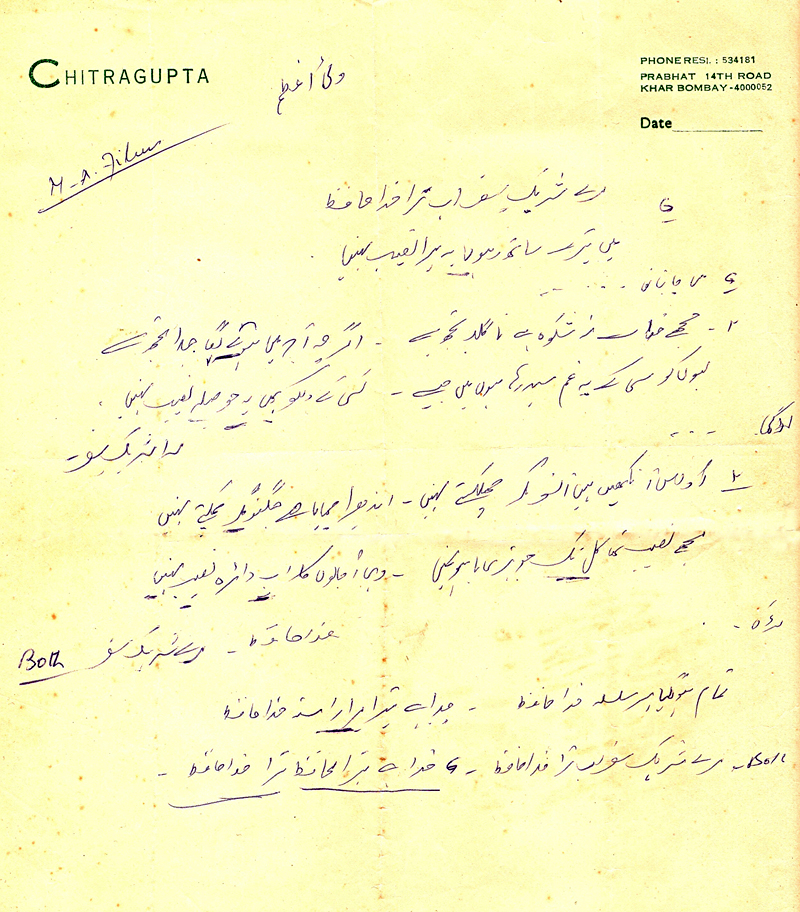 CHITRAGUPTA
ولئ اعظم
PHONE RESI. : 534181
PRABHAT 14TH ROAD
KHAR BOMBAY-4000052
Date
M-A. Films
مرے شریک سفر اب ترا خدا حافظ
میں تیرے ساتھ رہوں یہ میرا نصیب نہیں
۲ - مجھے خدا سے نہ شکوہ ہے نا گلہ تجھ سے - اگر چہ آج میں ہوئے گیا جدا تجھ سے
لبوں کو سی کے یہ غم سہہ رہا ہوں میں جیسے - کسی کے دل کو بھی یہ حوصلہ نصیب نہیں
مرے شریک سفر -
اداس آنکھیں ہیں آنسو مگر چھلکتے نہیں - اندھیرا چھایا ہے جگنو مگر چمکتے نہیں
مجھے نصیب تھا کل تک جو تیری بانہوں میں - وہی اجالوں کا اب دائرہ نصیب نہیں
خدا حافظ - مرے شریک سفر
Both
تمام ہو گیا ہر سلسلہ خدا حافظ - جدا ہے تیرا مرا راستہ خدا حافظ
Both - مرے شریک سفر اب ترا خدا حافظ - خدا ہے تیرا محافظ ترا خدا حافظ -